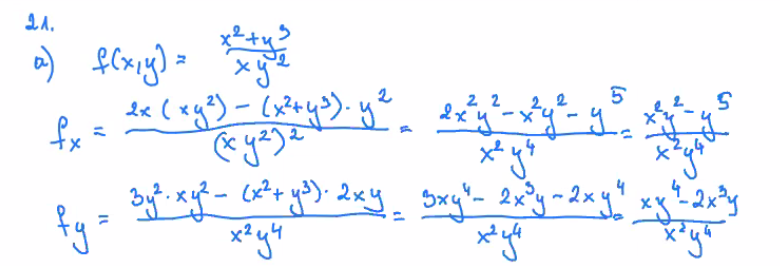 21.
a) f(x,y) = (x² + y³)/(xy²)
fx = (2x(xy²) - (x² + y³)·y²)/((xy²)²) = (2x²y² - x²y² - y⁵)/(x²y⁴) = (x²y² - y⁵)/(x²y⁴)
fy = (3y²·xy² - (x² + y³)·2xy)/(x²y⁴) = (3xy⁴ - 2x³y - 2xy⁴)/(x²y⁴) = (xy⁴ - 2x³y)/(x²y⁴)